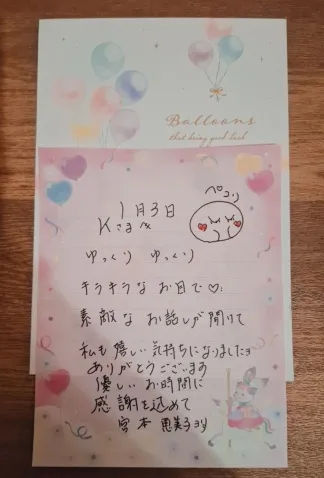 Balloons
that bring good luck
1月3日
ペコリ
Kさま
ゆっくり ゆっくり
キラキラな お目で♡
素敵な お話しが聞けて
私も嬉しい気持ちになりましたョ
ありがとうございます
優しいお時間に
感謝を込めて
宮本 恵美子より